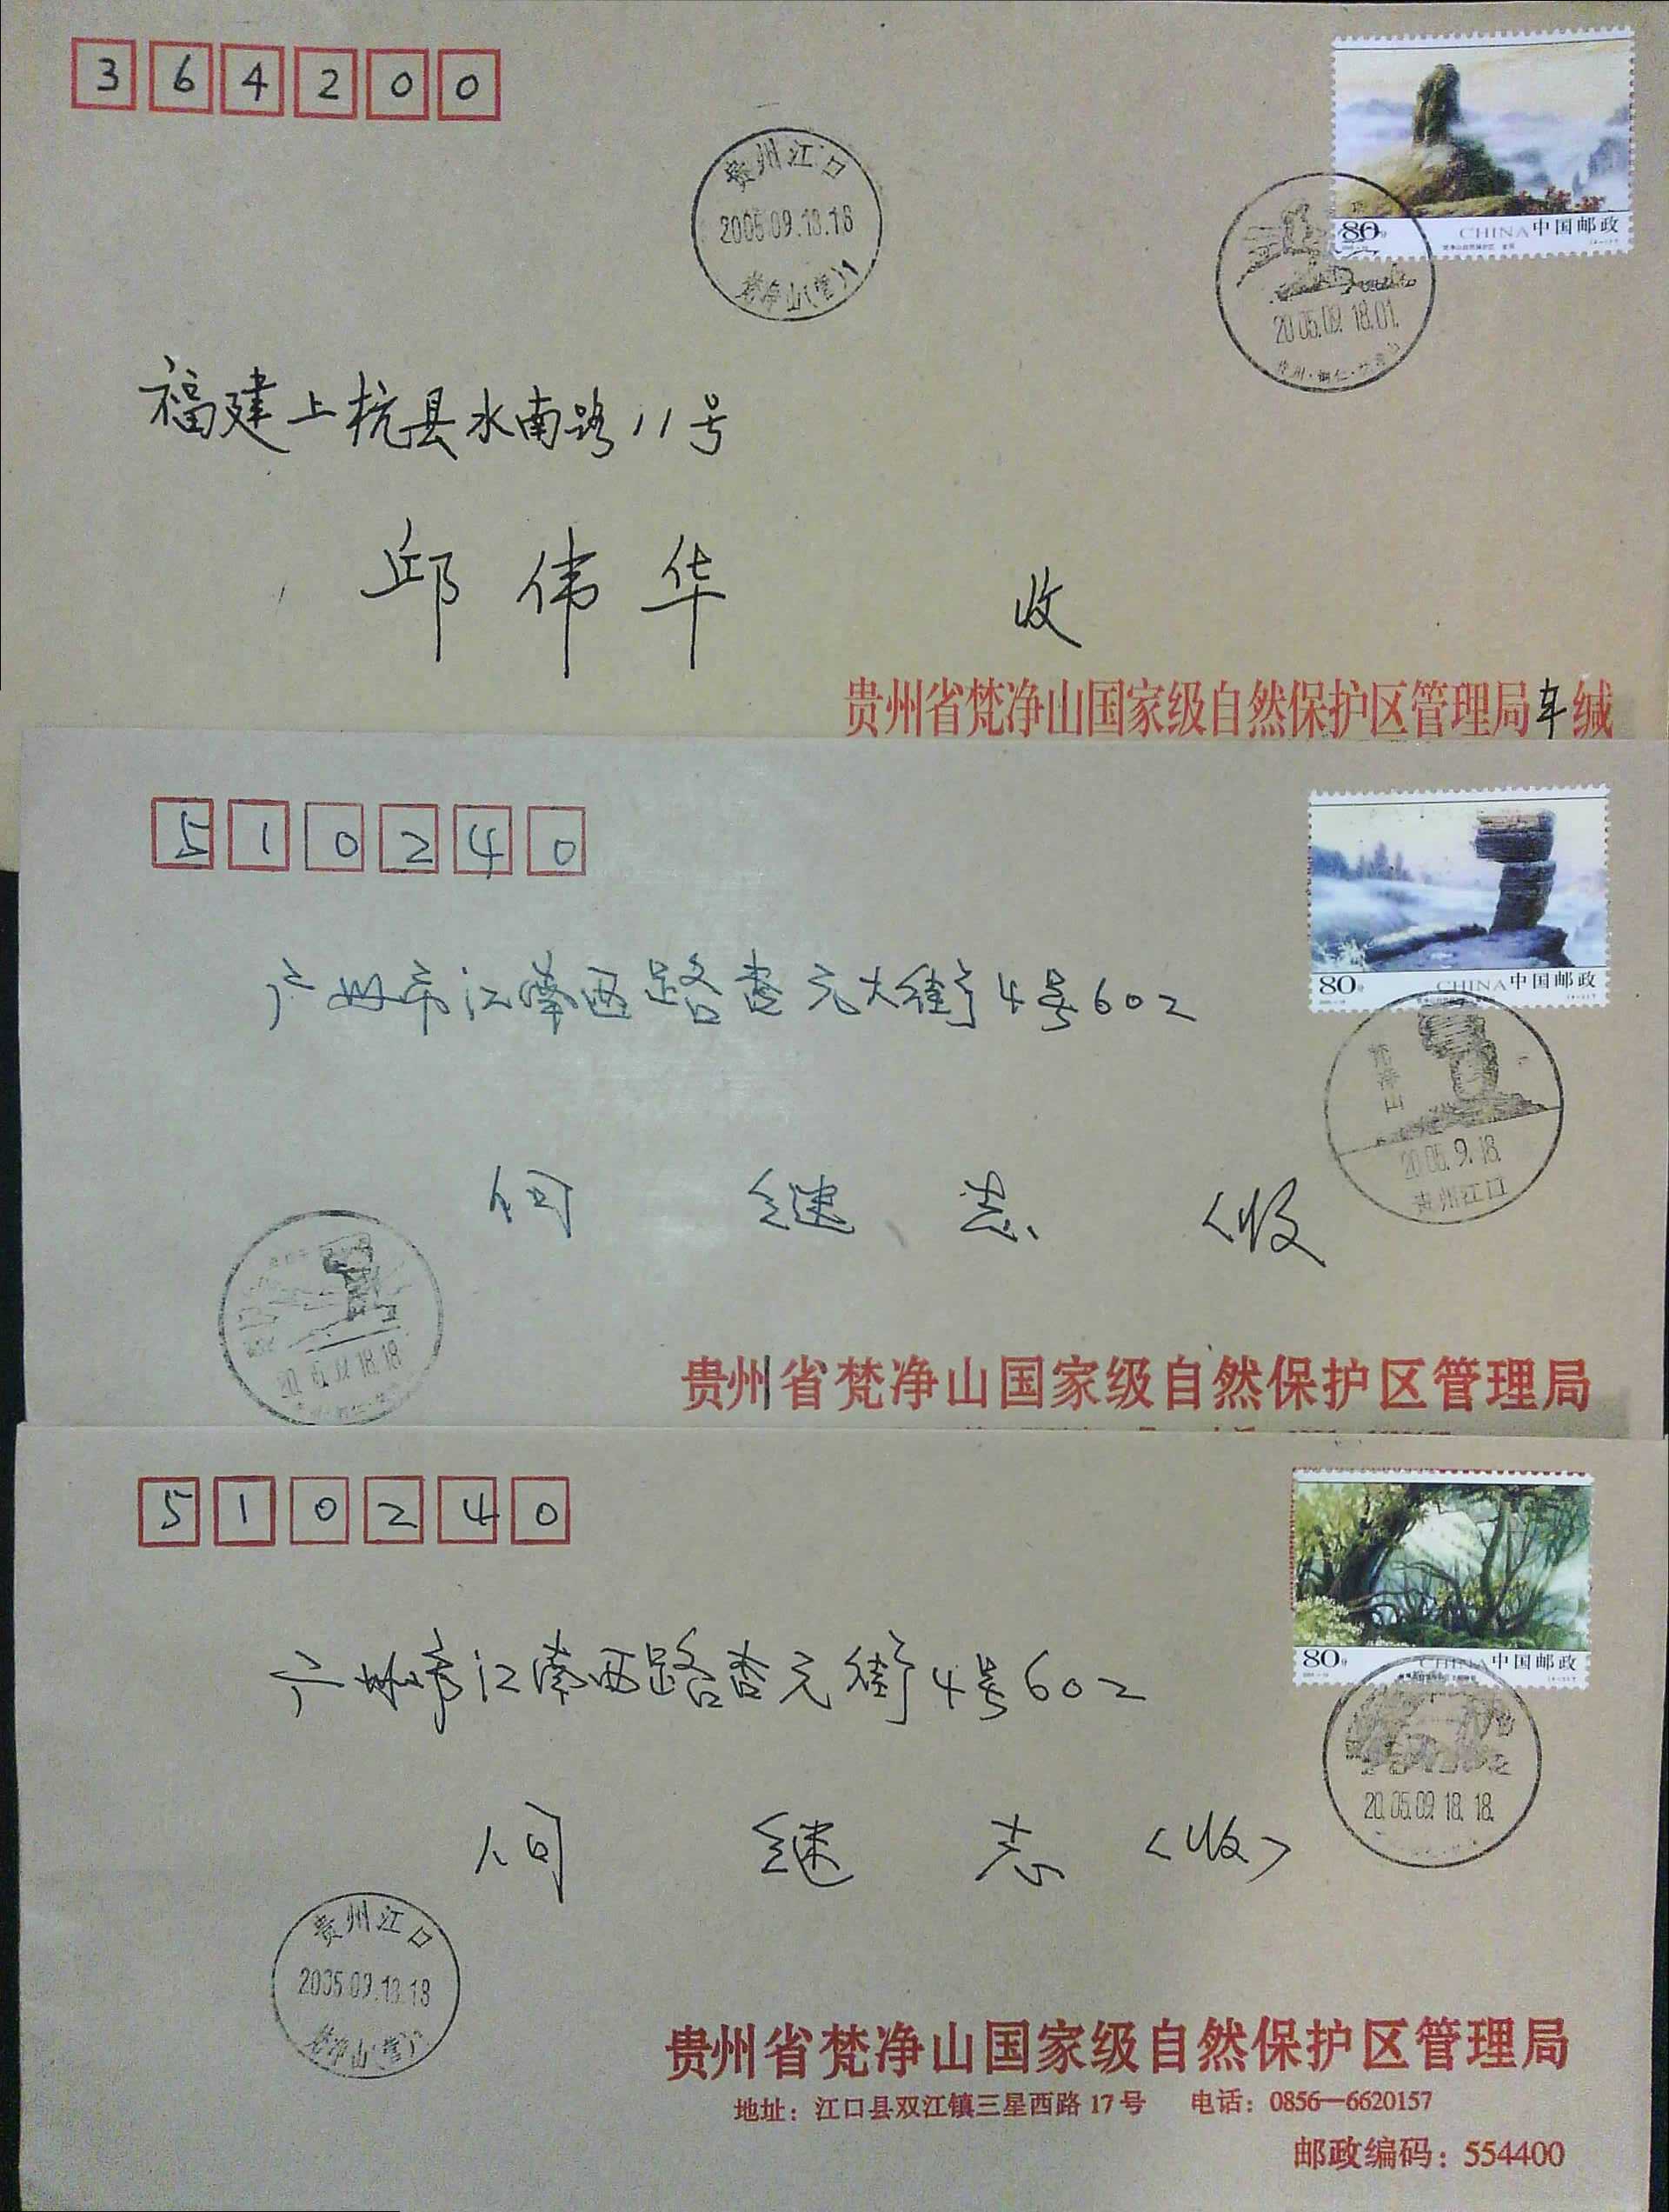 364200
贵州江口
2005.09.18.18
梵净山(营)1
80分 CHINA 中国邮政
2005.09.18.01.
贵州·铜仁·
福建上杭县水南路11号
邱伟华 收
贵州省梵净山国家级自然保护区管理局车缄
510240
80分 CHINA 中国邮政
广州市江南西路杏元大街4号602
梵净山
2005.9.18.
贵州江口
何继志 〈收
18.18
贵州省梵净山国家级自然保护区管理局
510240
80分 CHINA 中国邮政
广州市江南西路杏元街4号602
20.05.09.18.18.
何继志〈收〉
贵州江口
2005.09.18.18
梵净山(营)1
贵州省梵净山国家级自然保护区管理局
地址：江口县双江镇三星西路17号 电话：0856—6620157
邮政编码：554400